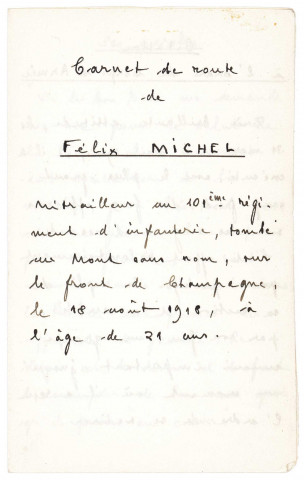 Carnet de route
de
Félix MICHEL
Mitrailleur au 101ème régi-
ment d'infanterie, tombé
au Mont sans nom, sur
le front de Champagne,
le 18 août 1918, à
l'âge de 21 ans.